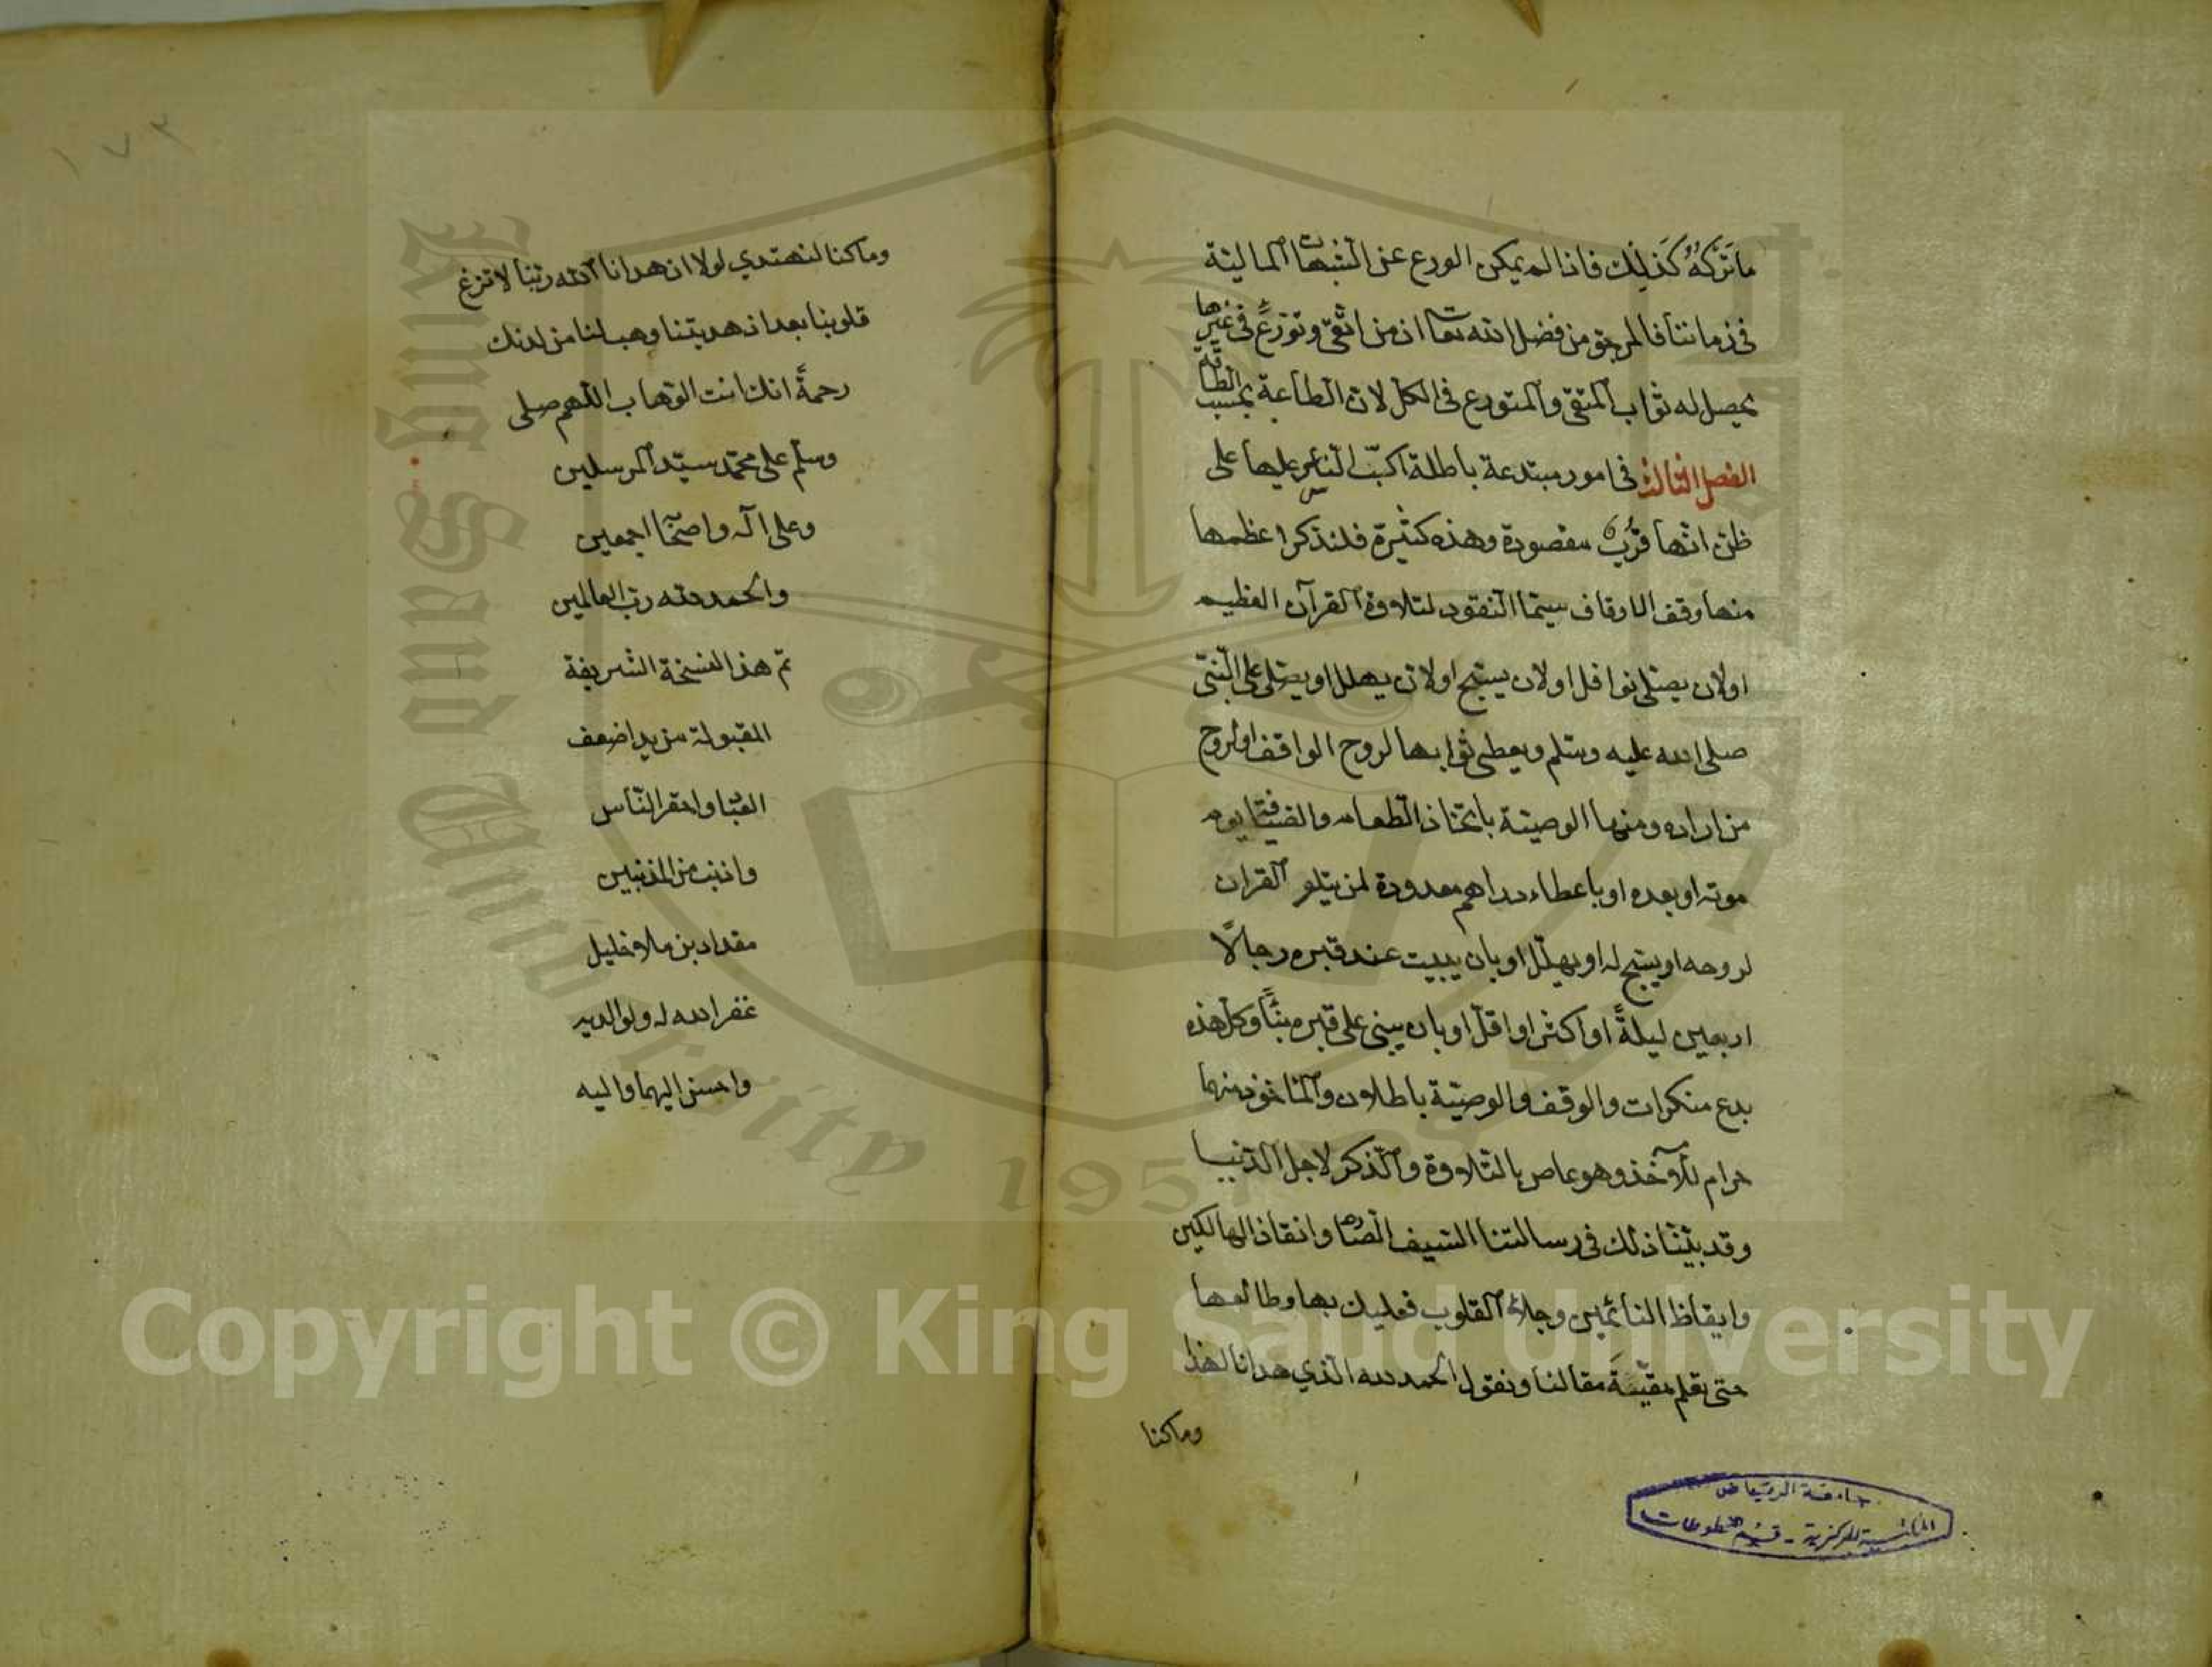 ما تَرَكَهُ كَذَلِكَ فاذا لم يمكن الورع عن الشبهات المالية
فى زماننا فالمرجوّ من فضل الله تعا ان من اتّقى وتورّع فى غيرها
يحصل له ثواب المتّقى والمتورع فى الكل لان الطاعة بحسب الطاقة
الفصل الثالث فى امور مبتدعة باطلة اكبّ الناس عليها على
ظن انها قُرَبٌ مقصودة وهذه كثيرة فلنذكر اعظمها
منها وقف الاوقاف سيّما النقود لتلاوة القرآن العظيم
اولان يصلى نوافل اولان يسبّح اولان يهلل او يصلى على النبّى
صلى الله عليه وسلّم ويعطى ثوابها لروح الواقف اولروح
من اراده ومنها الوصيّة باتخاذ الطعام والضيافة يوم
موته او بعده او باعطاء دراهم معدودة لمن يتلو القران
لروحه او يسبّح له او يهلّل او بان يبيت عند قبره رجالاً
اربعين ليلةً او اكثر او اقلّ او بان يبنى على قبره بناً وكل هذه
بدع منكرات والوقف والوصيّة باطلان والمأخوذ منهما
حرام للآخذ وهو عاص بالتلاوة والذكر لاجل الدّنيا
وقد بيّنّا ذلك فى رسالتنا السيف الصّارم وانقاذ الهالكين
وايقاظ النائمين وجلاء القلوب فعليك بها وطالعها
حتى تعلم حقيّة مقالنا ونقول الحمد لله الّذي هدانا لهذا
وما كنا
جامعة الرياض
المكتبة المركزية - قسم المخطوطات
١٧٣
وما كنا لنهتدي لولا ان هدانا الله ربّنا لا تزغ
قلوبنا بعد اذ هديتنا وهب لنا من لدنك
رحمةً انك انت الوّهاب اللّهم صلى
وسلّم على محمّد سيّد المرسلين
وعلى اله واصحا اجمعين
والحمد لله ربّ العالمين
تمّ هذا النسخة الشريفة
المقبولة من يد اضعف
العباد واحقر النّاس
واذنب من المذنبين
مقداد بن ملا خليل
غفر الله له ولوالديه
واحسن اليهما واليه
King Saud University 1957
Copyright © King Saud University